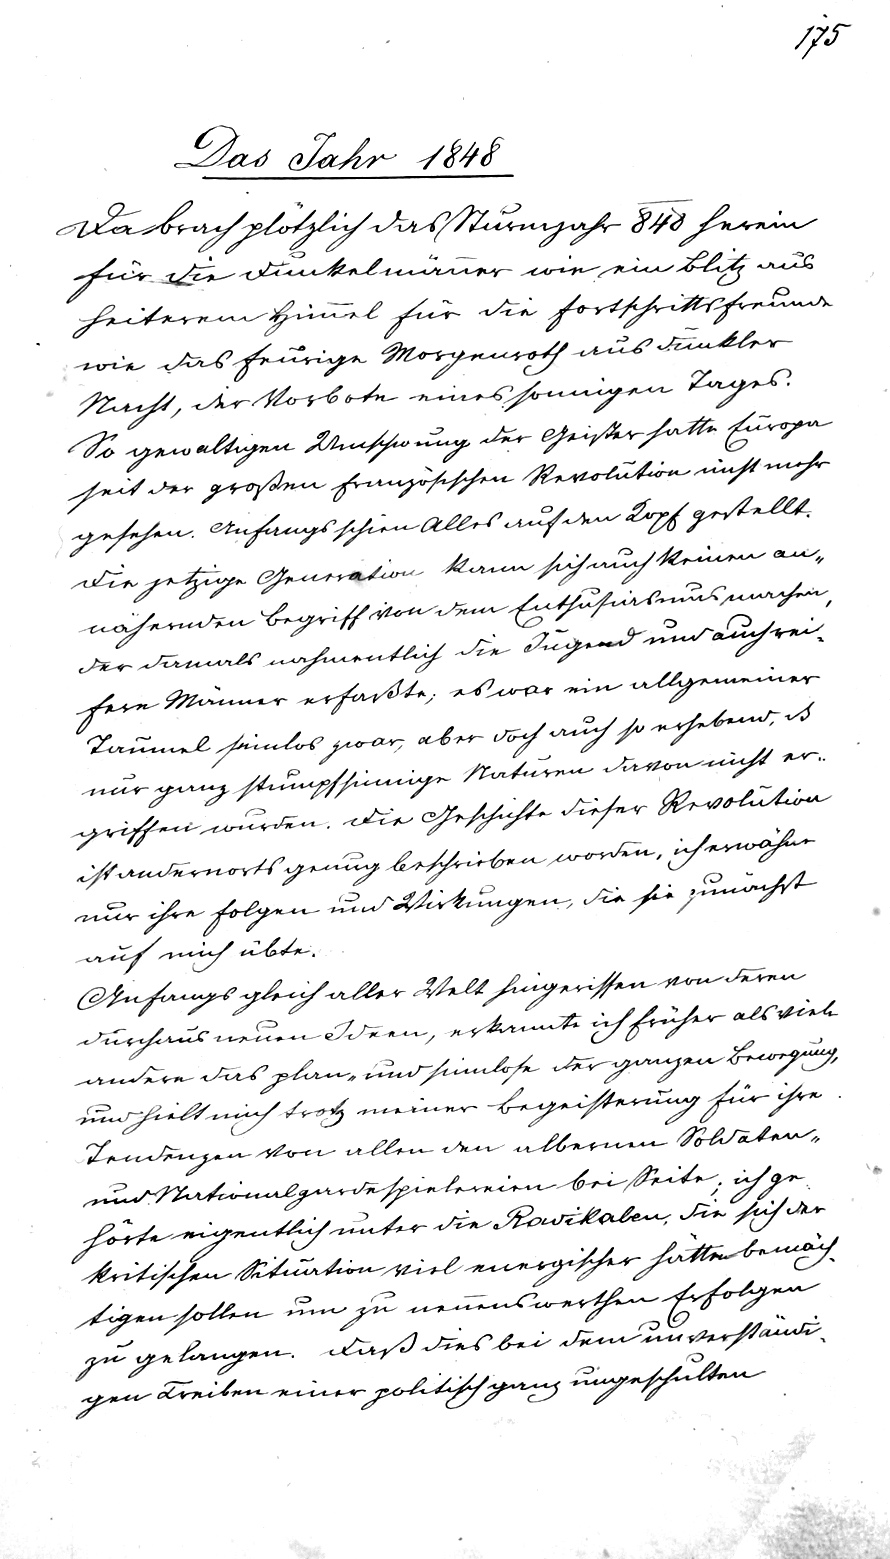 175
Das Jahr 1848
Da brach plötzlich das Sturmjahr 848 herein
für die Dunkelmänner wie ein Blitz aus
heiterem Himmel für die Fortschrittsfreunde
wie das feurige Morgenroth aus dunkler
Nacht, der Vorbote eines sonnigen Tages.
So gewaltigen Umschwung der Geister hatte Europa
seit der großen französischen Revolution nicht mehr
gesehen. Anfangs schien Alles auf den Kopf gestellt.
Die jetzige Generation kann sich auch keinen an„
nähernden Begriff von dem Enthusiasmus machen,
der damals nahmentlich die Jugend und auch rei-
fere Männer erfaßte; es war ein allgemeiner
Taumel sinnlos zwar, aber doch auch so erhebend, dß
nur ganz stumpfsinnige Naturen davon nicht er„
griffen wurden. Die Geschichte dieser Revolution
ist andernorts genug beschrieben worden, ich erwähne
nur ihre Folgen und Wirkungen, die sie zunächst
auf mich übte.
Anfangs gleich aller Welt hingerissen von deren
durchaus neuen Ideen, erkannte ich früher als viele
andere das plan„ und sinnlose der ganzen Bewegung,
und hielt mich trotz meiner Begeisterung für ihre
Tendenzen von allen den albernen Soldaten„
und Nationalgardespielereien bei Seite; ich ge
hörte eigentlich unter die Radikalen, die sich der
kritischen Situation viel energischer hätten bemäch-
tigen sollen um zu nennenswerthen Erfolgen
zu gelangen. Daß dies bei dem unverständi-
gen Treiben einer politisch ganz ungeschulten